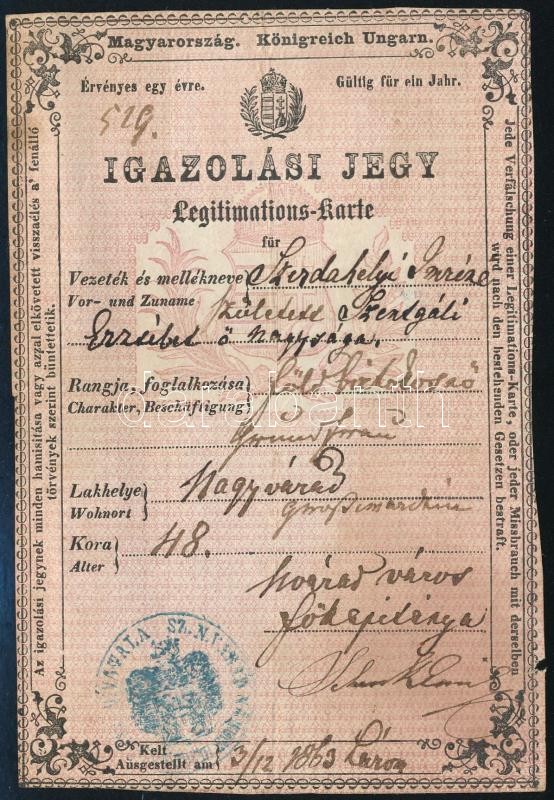 Magyarország. Königreich Ungarn.
Érvényes egy évre.
Gültig für ein Jahr.
529.
IGAZOLÁSI JEGY
Legitimations-Karte
für
Vezeték és mellékneve Szerdahelyi Imréné
Vor- und Zuname született Szentgáli
Erzsébet ő nagysága.
Rangja, foglalkozása föld birtokosnő
Charakter, Beschäftigung
darabanth
Lakhelye Nagyvárad
Wohnort Großwardein
Kora 48.
Alter
Nvárad város
főkapitánya
Kelt
Ausgestellt am 3/12 1863
Az igazolási jegynek minden hamisitása vagy azzal elkövetett visszaélés a' fenálló
törvények szerint büntettetik.
Jede Verfälschung einer Legitimations-Karte, oder jeder Missbrauch mit derselben
wird nach den bestehenden Gesetzen bestraft.